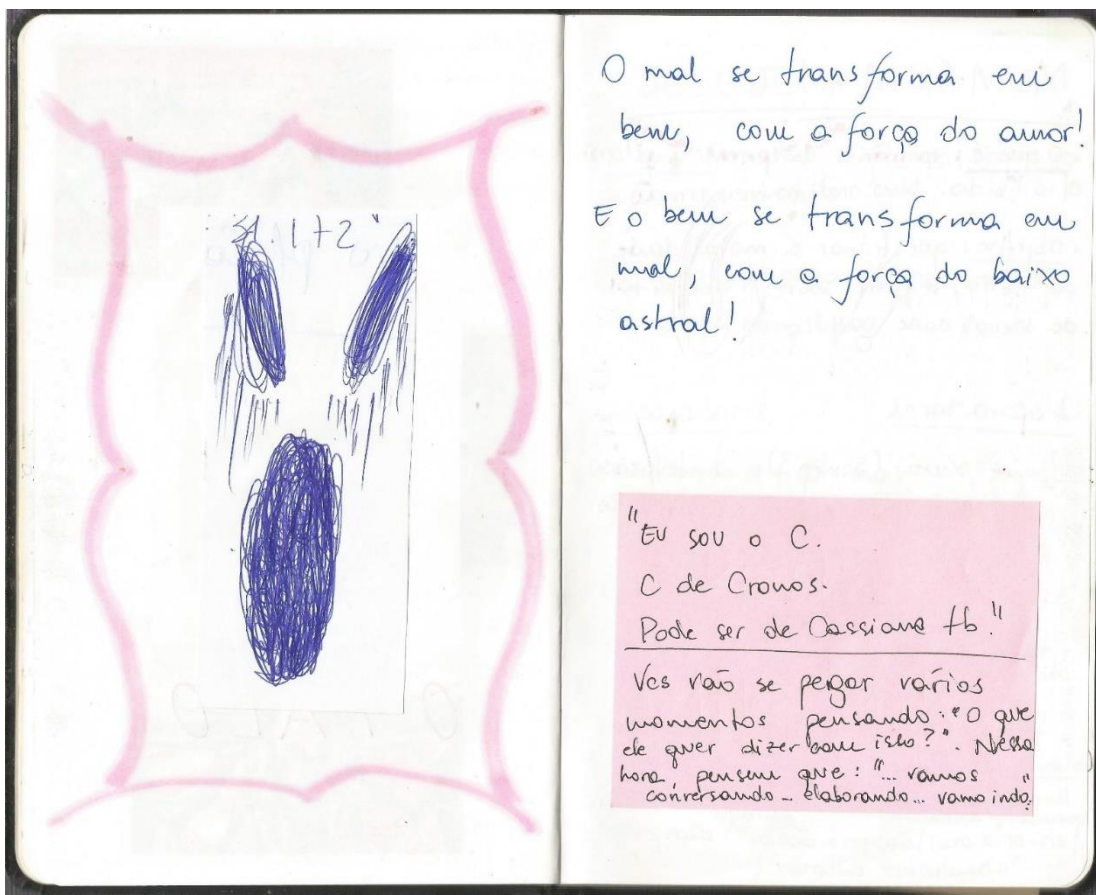 1+2"
O mal se transforma em
bem, com a força do amor!
E o bem se transforma em
mal, com a força do baixo
astral!
"EU SOU O C.
C de Cronos.
Pode ser de Cassiano tb."
Vcs vão se pegar vários
momentos pensando: "O que
ele quer dizer com isto?". Nessa
hora, pensem que: "... vamos
conversando... elaborando... vamo indo."